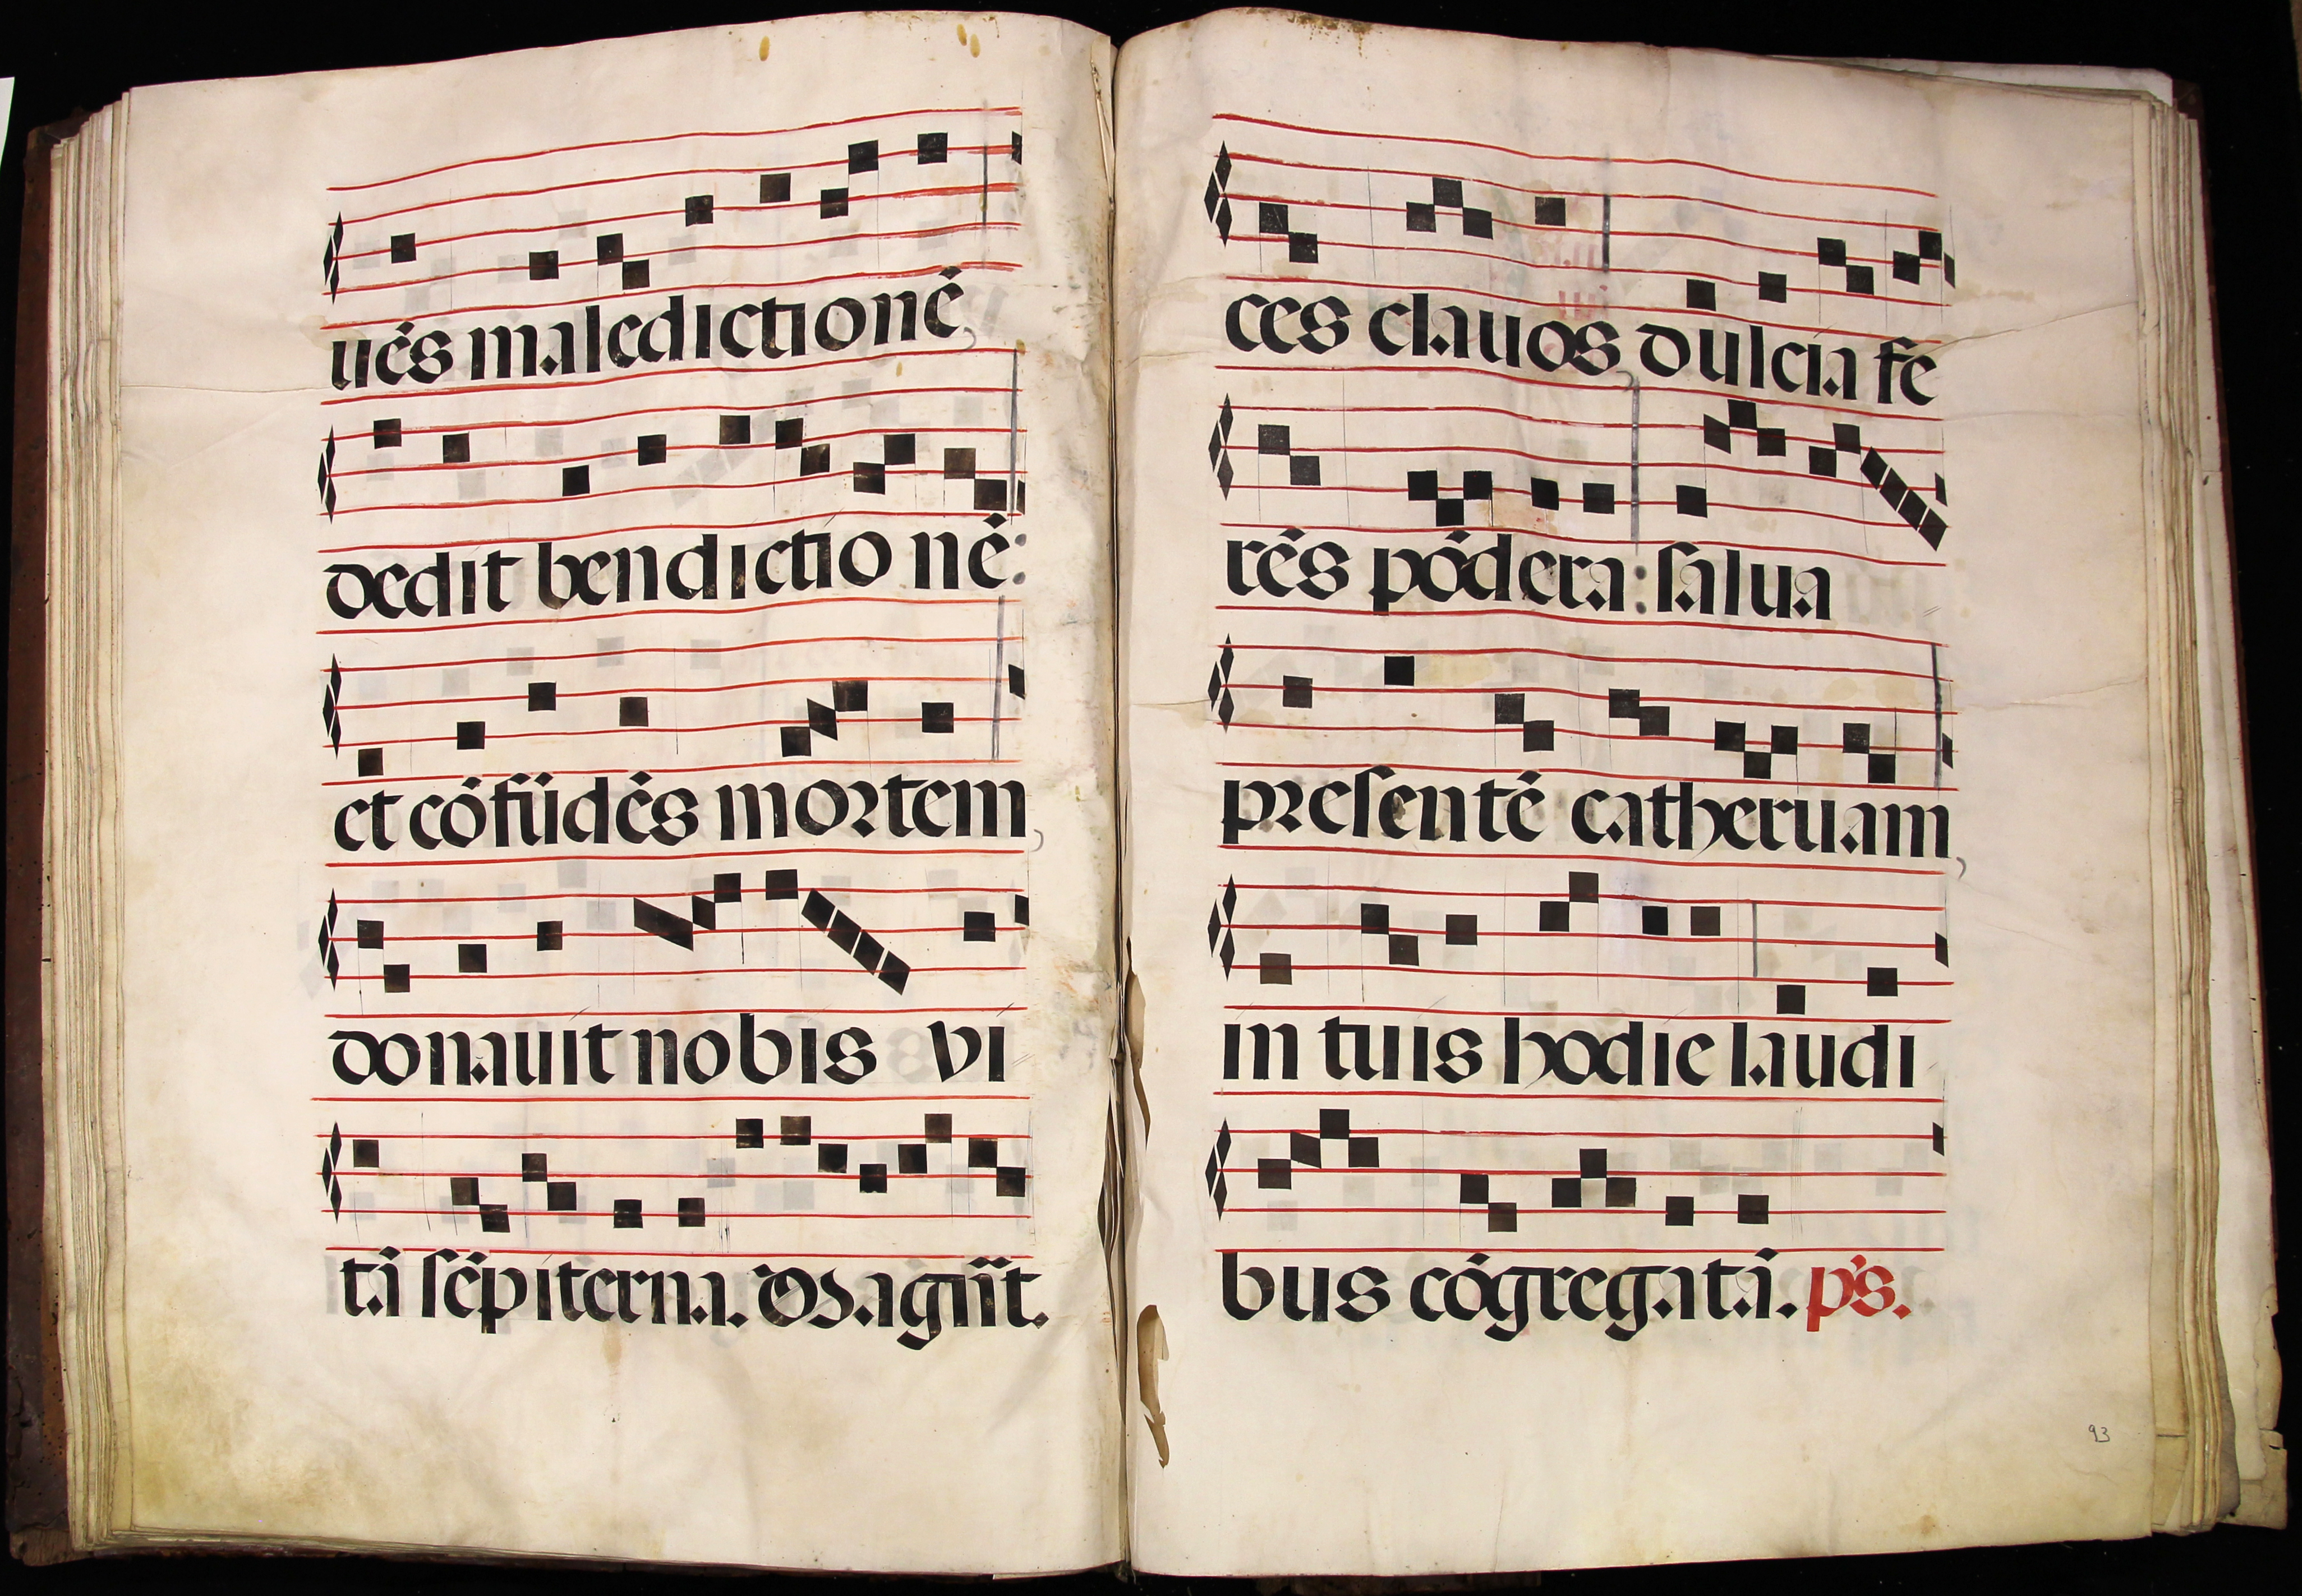 uẽs maledictionẽ,
dedit bendictio nẽ:
et cõfũdẽs mortem,
donauit nobis vi
tã sẽpiterna. Magñit.
ces clauos, dulcia fe
rẽs põdera: salua
presentẽ catheruam,
in tuis hodie laudi
bus cõgregatã. p̃s.
93